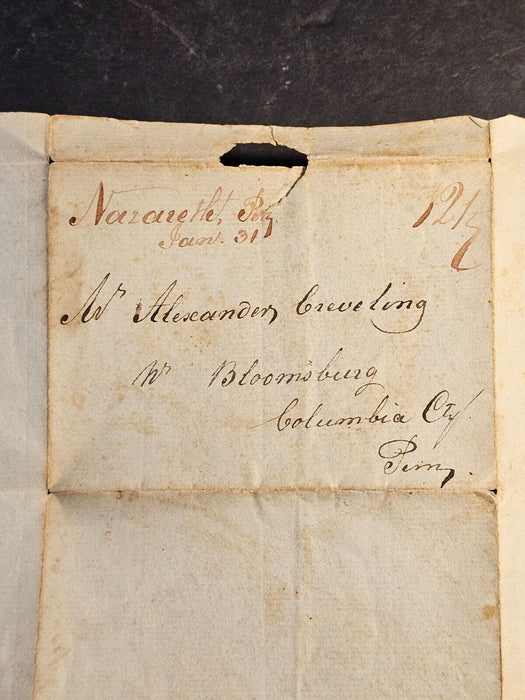 Nazareth, Pa
Jan. 31
12½
Mr Alexander Creveling
Nr Bloomsburg
Columbia Cty
Penn,